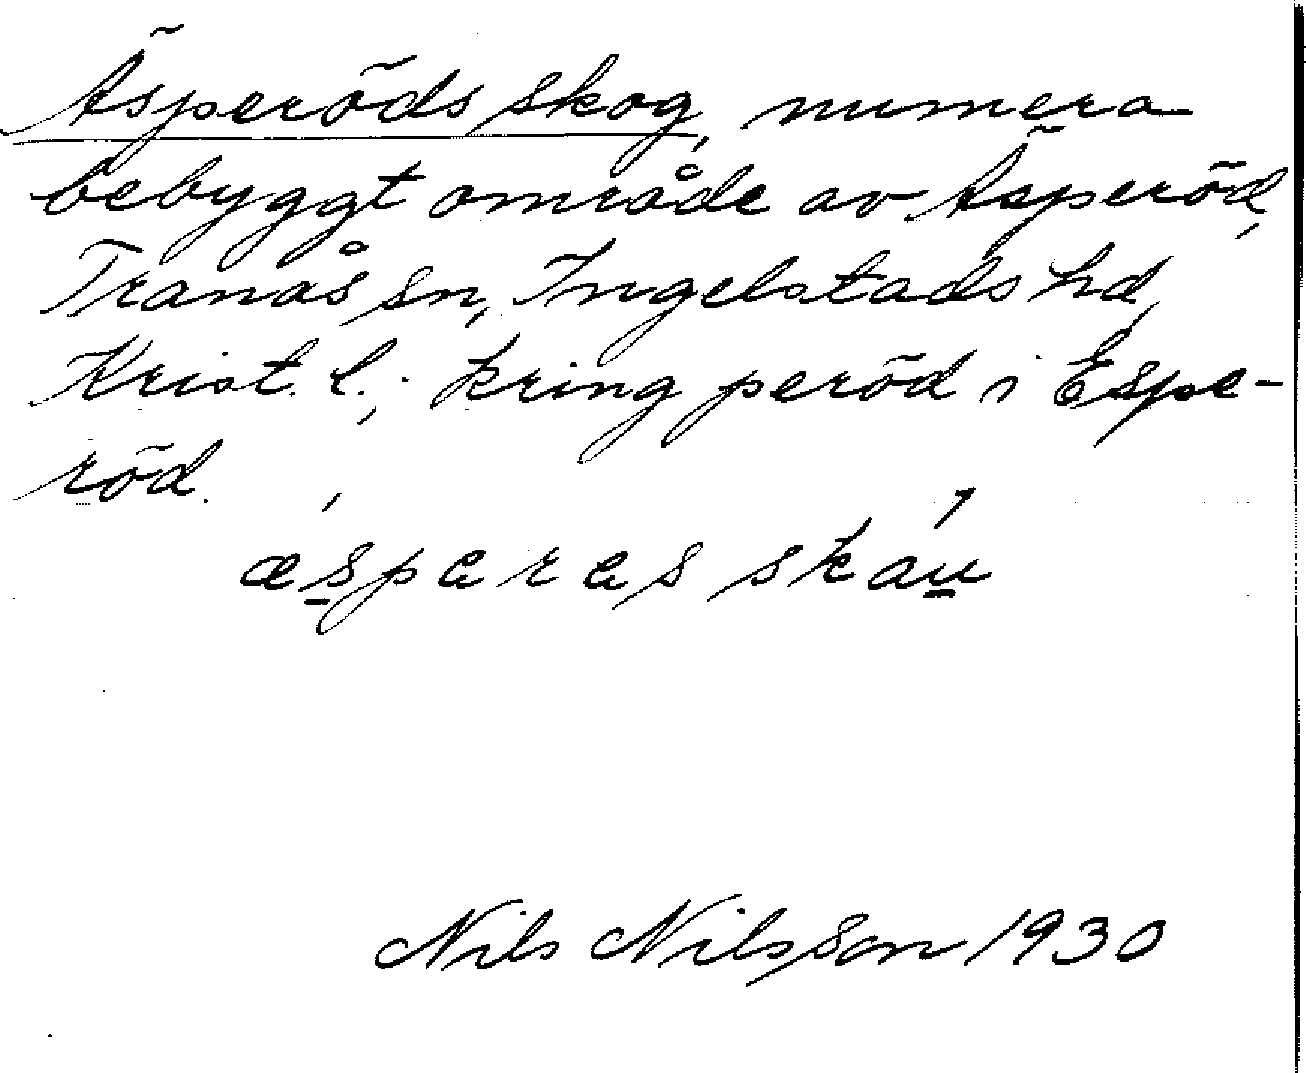 Äsperöds skog, numera
bebyggt område av Äsperöd,
Tranås sn, Ingelstads hd,
Krist. l.; kring peröd i Espe-
röd.
æsparas skáu
Nils Nilsson 1930